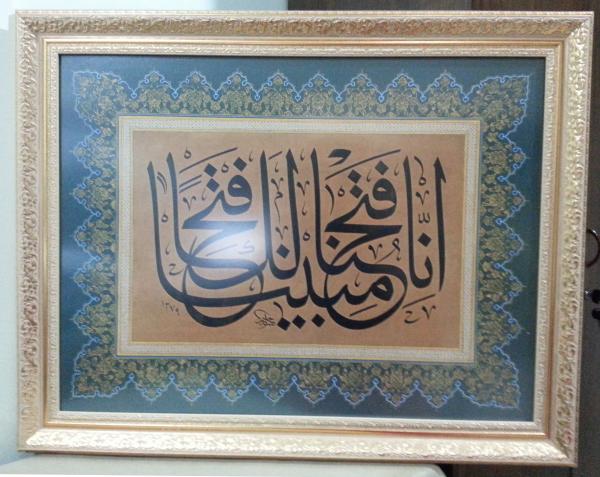 إنّا فتحنا لك فتحًا مبينًا
١٣٧٩